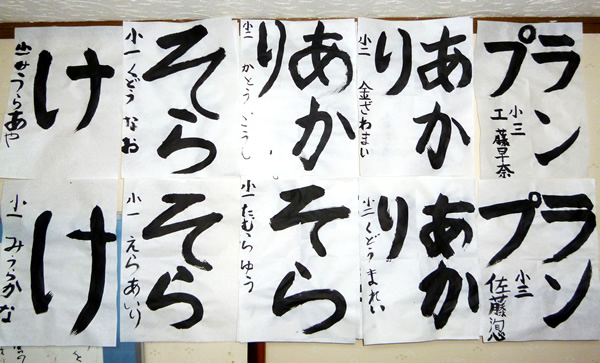 ラン
プ
小三
工藤早奈
あか
り
小二 金ざわまい
あか
り
小二 かとう
そら
小一 くどう なお
け
小一 みうらあや
ラン
プ
小三
佐藤
あか
り
小二 くどう まれい
そら
小一 たむら ゆう
そら
小一 えらあいり
け
小一 みうらかな